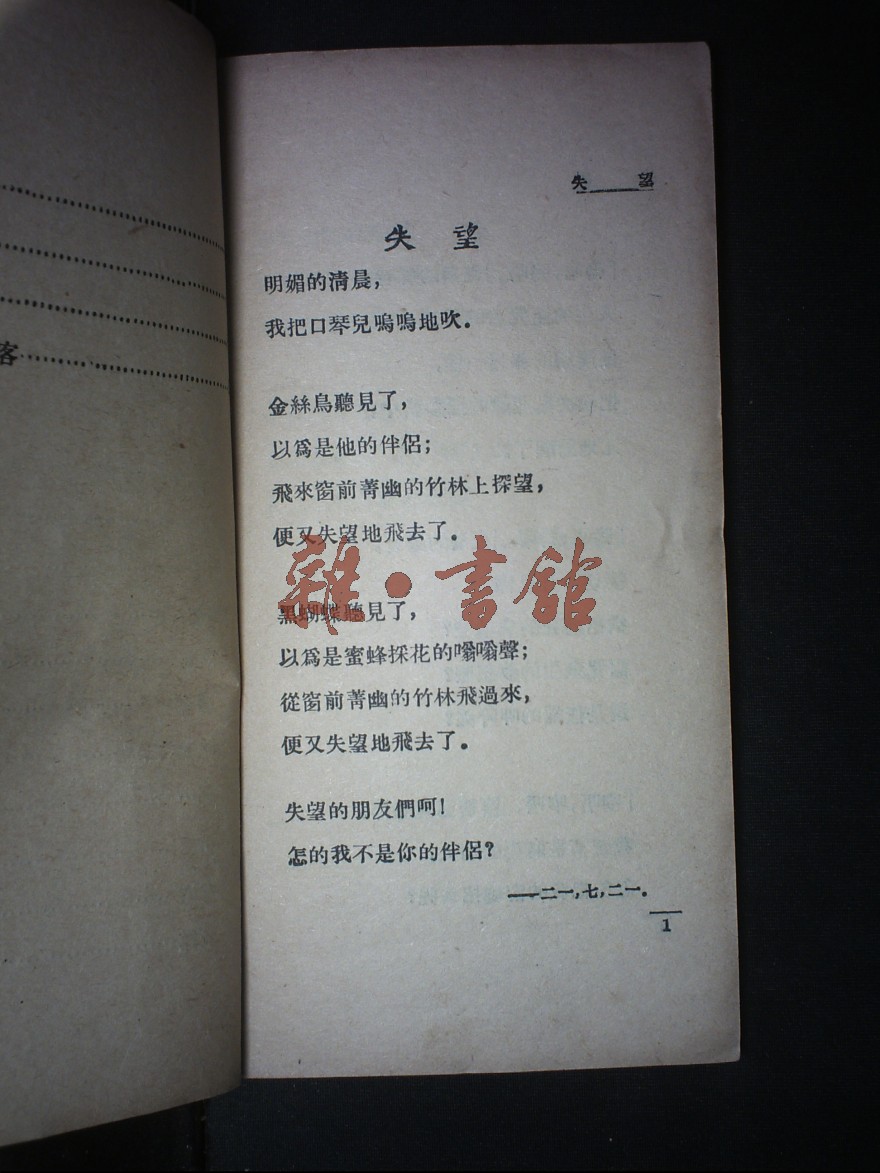 客
失 望
失 望
明媚的淸晨，
我把口琴兒嗚嗚地吹。
金絲鳥聽見了，
以爲是他的伴侶；
飛來窗前菁幽的竹林上探望，
便又失望地飛去了。
雜·書館
黑蝴蝶聽見了，
以爲是蜜蜂採花的嗡嗡聲；
從窗前菁幽的竹林飛過來，
便又失望地飛去了。
失望的朋友們呵！
怎的我不是你的伴侶？
——二一，七，二一。
1